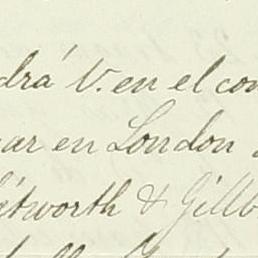 drá V. en el con
ar en London
tworth & Gillb